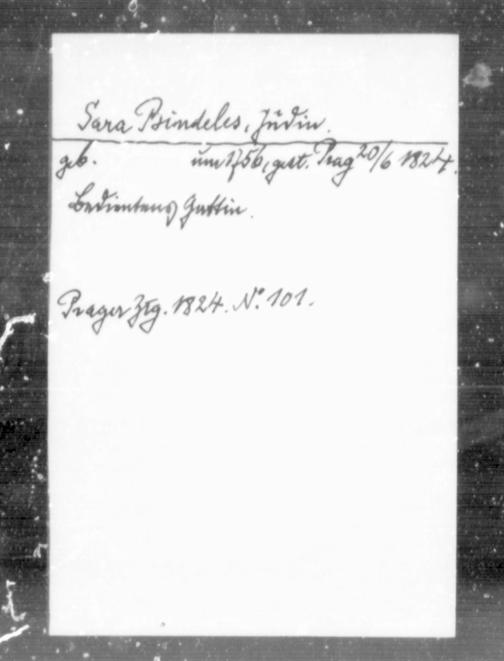 Sara Bindeles, Jüdin.
geb. um 1756, gest. Prag 20/6 1824.
Bedientens Gattin.
Prager Ztg. 1824. No. 101.